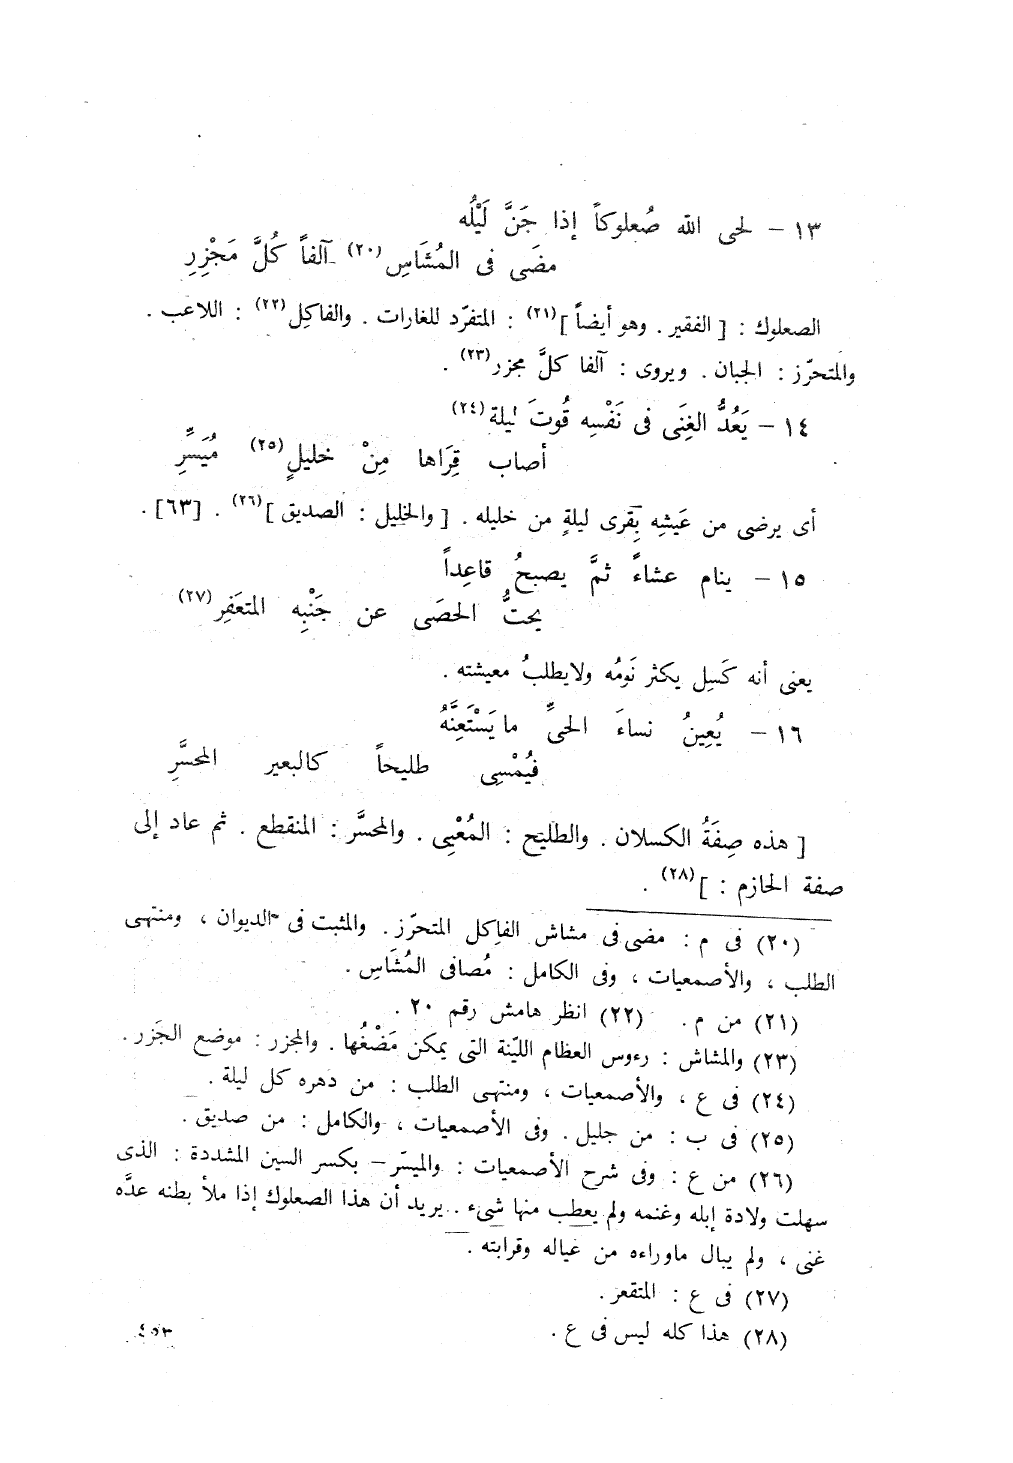 ١٣ – لحى الله صُعلوكاً إذا جَنَّ لَيْلُه
مضَى فى المُشَاسِ (٢٠) آلفاً كُلَّ مَجْزِرِ
الصعلوك : [ الفقير . وهو أيضاً ] (٢١) : المتفرّد للغارات . والفاكِل (٢٢) : اللاعب .
والمتحرّز : الجبان . ويروى : آلفا كلَّ مجزر (٢٣) .
١٤ – يَعُدُّ الغِنَى فى نَفْسِه قُوتَ ليلة (٢٤)
أصاب قِرَاها مِنْ خليلٍ (٢٥) مُيَسَّرِ
أى يرضى من عَيشِه بِقرى ليلةٍ من خليله . [ والخليل : الصديق ] (٢٦) . [٦٣] .
١٥ – ينام عشاءً ثمَّ يصبحُ قاعِداً
يحتُّ الحصَى عن جَنْبِه المتعَفِر (٢٧)
يعنى أنه كَسِل يكثر نَومُه ولايطلبُ معيشته .
١٦ – يُعِينُ نساءَ الحىِّ مايَسْتَعِنَّهُ
فيُمْسِى طليحاً كالبعير المحسَّرِ
[ هذه صِفَةُ الكسلان . والطليح : المُعْيِى . والمحسَّر : المنقطع . ثم عاد إلى
صفة الحازم : ] (٢٨) .
(٢٠) فى م : مضى فى مشاش الفاكل المتحرّز . والمثبت فى الديوان ، ومنتهى
الطلب ، والأصمعيات ، وفى الكامل : مُصافى المُشَاسِ .
(٢١) من م . (٢٢) انظر هامش رقم ٢٠ .
(٢٣) والمشاش : رءوس العظام الليّنة التى يمكن مَضْغُها . والمجزر : موضع الجَزر .
(٢٤) فى ع ، والأصمعيات ، ومنتهى الطلب : من دهره كل ليلة .
(٢٥) فى ب : من جليل . وفى الأصمعيات ، والكامل : من صديق .
(٢٦) من ع : وفى شرح الأصمعيات : والميسّر – بكسر السين المشددة : الذى
سهلت ولادة إبله وغنمه ولم يعطب منها شىء . يريد أن هذا الصعلوك إذا ملأ بطنه عدَّه
غنى ، ولم يبال ماوراءه من عياله وقرابته .
(٢٧) فى ع : المتقعر .
(٢٨) هذا كله ليس فى ع .
٤٥٣